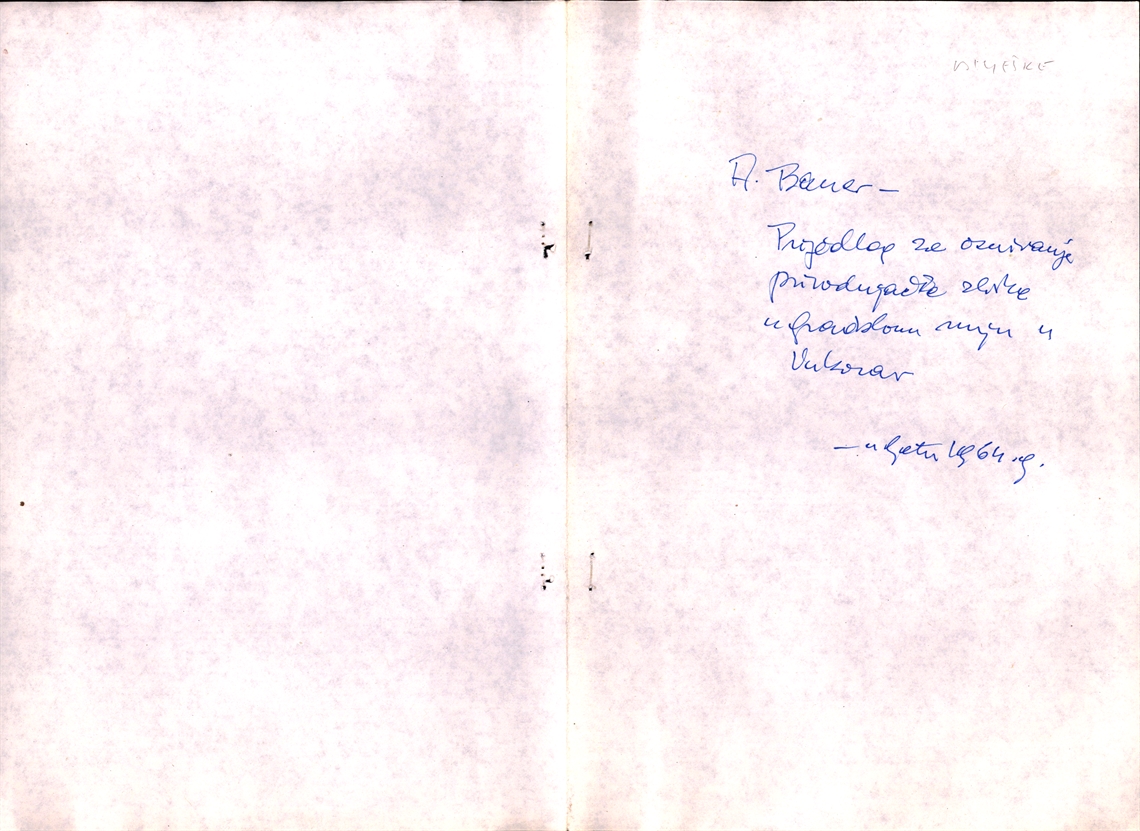 A. Bauer –
Prijedlog za osnivanje
prirodnjačke zbirke
u Gradskom muzeju u
Vukovar
– u ljetu 1964.g.